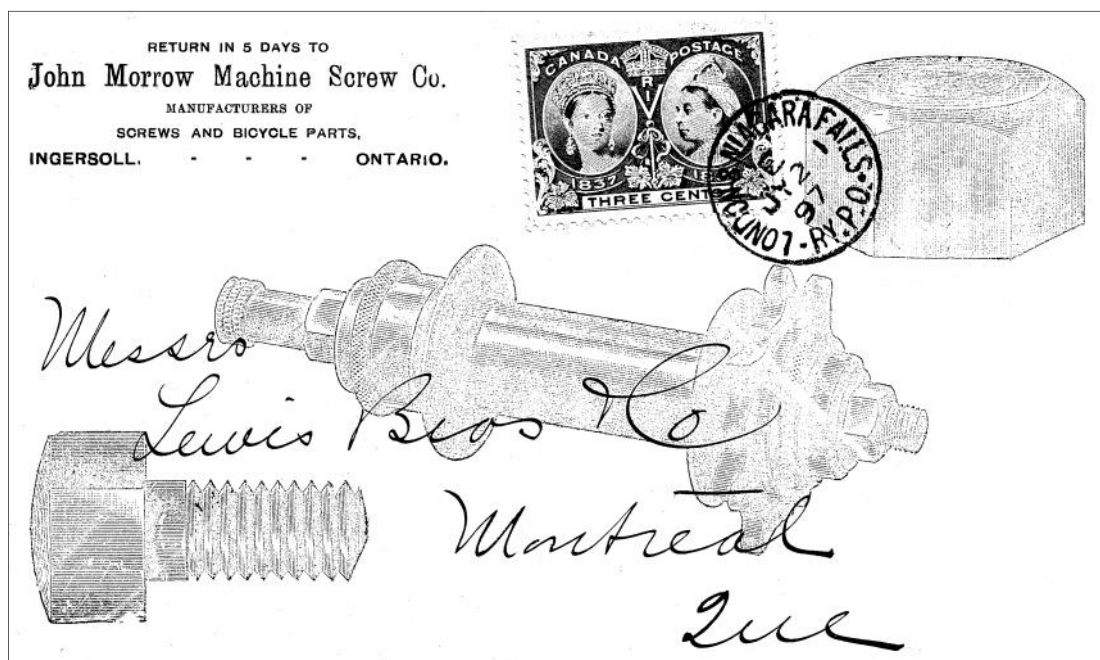 RETURN IN 5 DAYS TO
John Morrow Machine Screw Co.
MANUFACTURERS OF
SCREWS AND BICYCLE PARTS,
INGERSOLL, - - - ONTARIO.
CANADA POSTAGE
1837
THREE CENTS
NIAGARA FALLS · LONDON - RY. P.O.
2
97
Messrs
Lewis Bros & Co
Montreal
Que